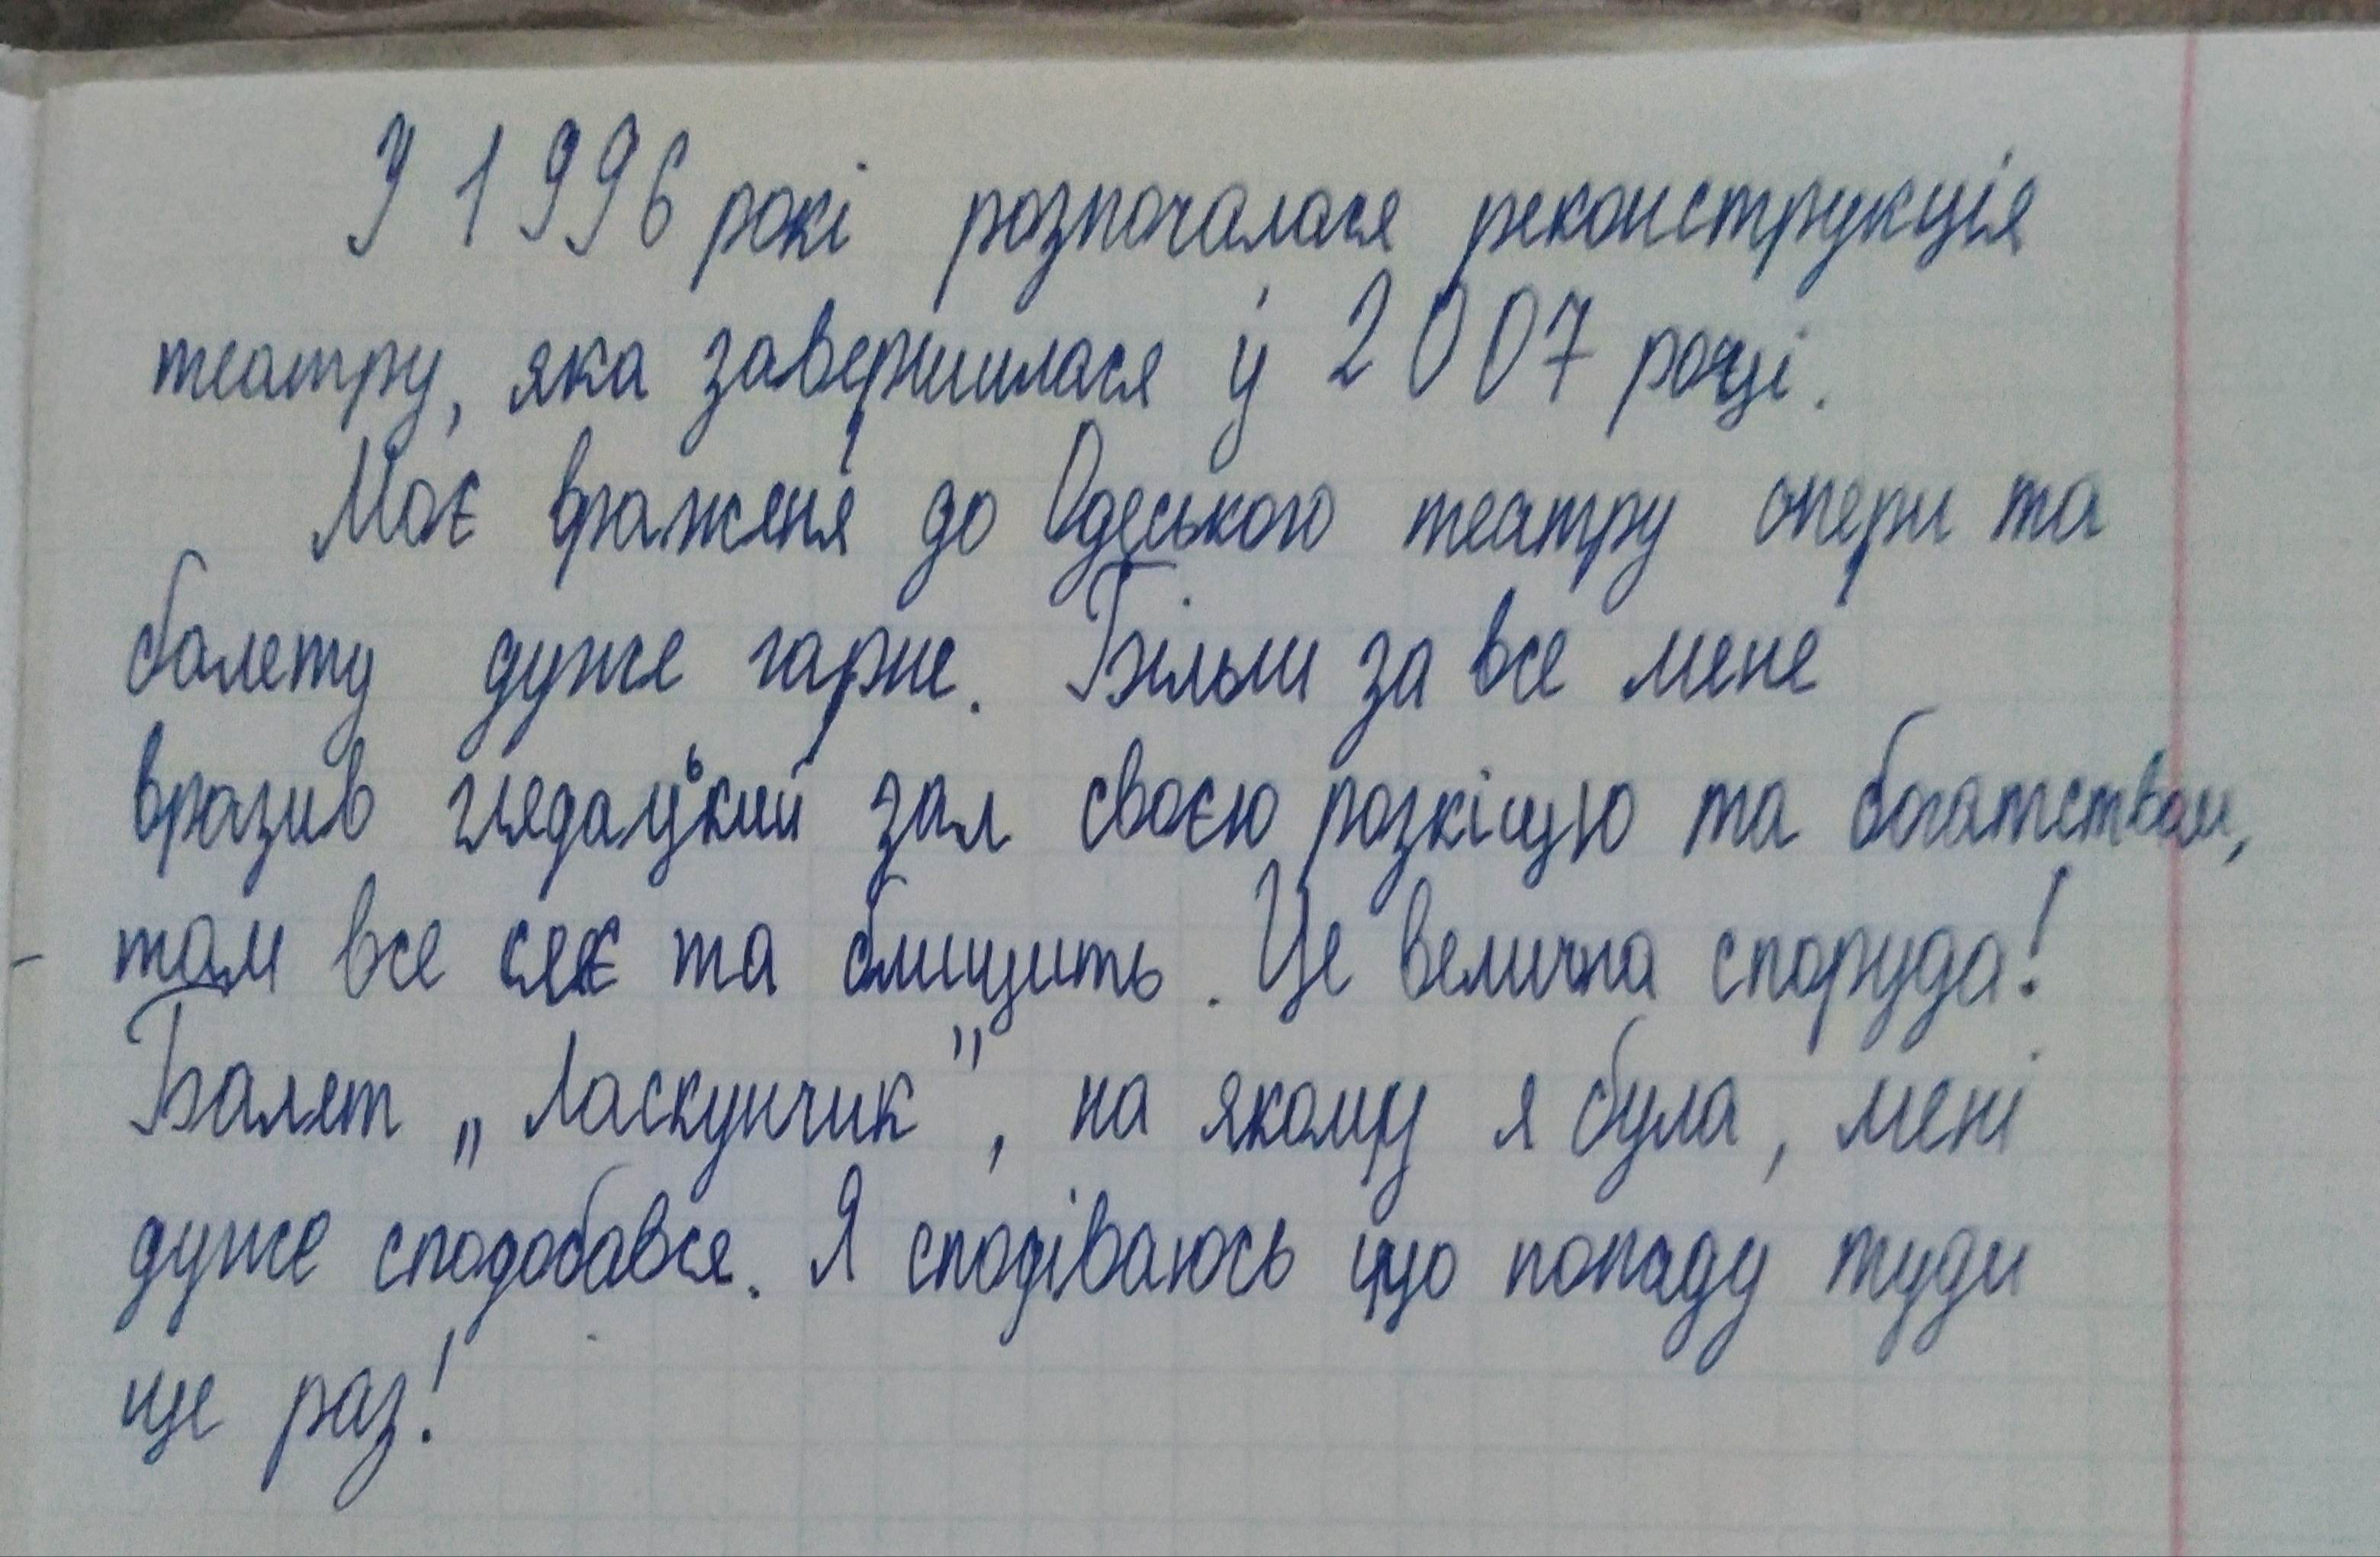 У 1996 рокі розпочалася реконструкція
театру, яка завершилася у 2007 році.
Моє враженя до Одеського театру опери та
балету дуже гарне. Більш за все мене
вразив глядацький зал своєю розкішцю та богатством,
там все сяє та блищить. Це велична споруда!
Балет „Ласкунчик", на якому я була, мені
дуже сподобався. Я сподіваюсь що попаду туди
ще раз!